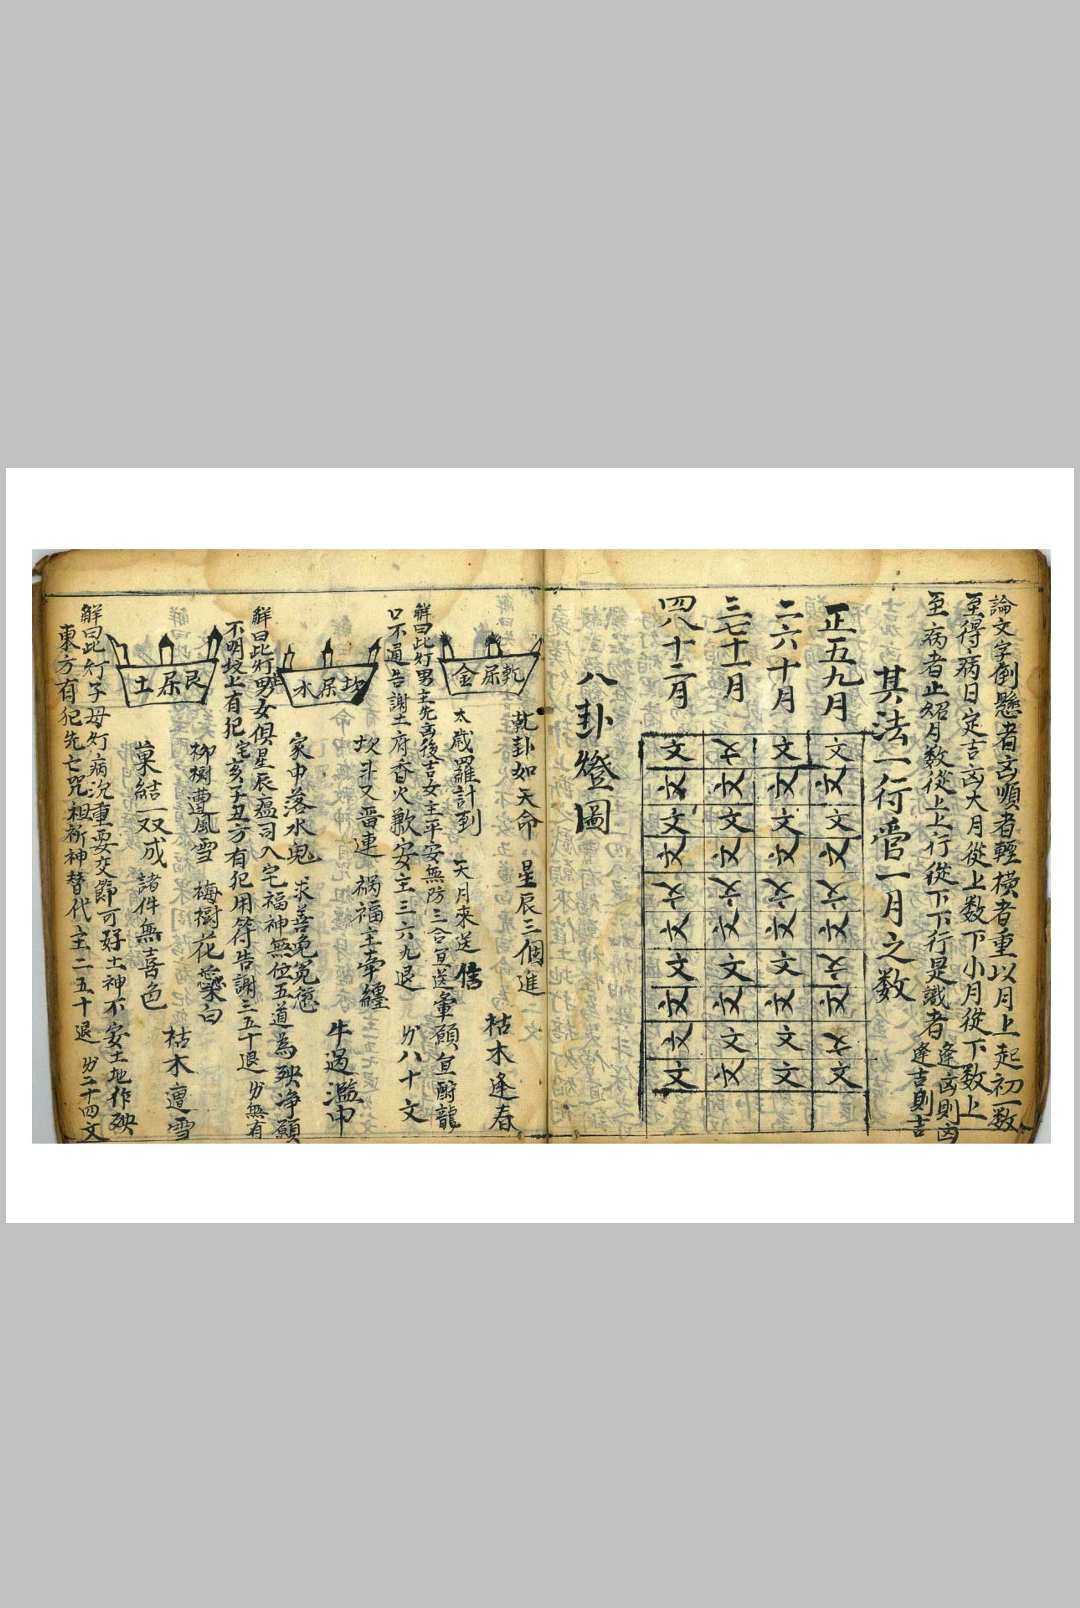 論文字倒懸者凶順者輕橫者重以月上起初一数
至得病日定吉凶大月從上数下小月從下数上
至病者止紹月数從上上行從下下行是識者逢凶則凶
逢吉則吉
其法一行管一月之数
正五九月
二六十月
三七十一月
四八十二月
文 文 文 文
文 文 文 文
文 文 文 文
文 文 文 文
文 文 文 文
文 文 文 文
文 文 文 文
文 文 文 文
文 文 文 文
文 文 文 文
八卦燈圖
乾屎金
乾卦如天命 星辰三個進
枯木逢春
太歲羅計到 天月來送信
解曰此灯男主先凶後吉女主平安無防三合宜送暈願宜酧龍
口不通告謝土府香火歉安主三六九退 㕤八十文
坎屎水
坎斗又畨連 禍福主牽纏
牛過濫田
家中落水鬼 求善免冤愆
解曰此灯男女俱星辰瘟司入宅福神無位五道為殃净願
不明坟上有犯宅亥子丑方有犯用符告謝三五十退 㕤無有
艮屎土
柳樹遭風雪 梅樹花蘂白
枯木遭雪
菓結一双成 諸件無喜色
解曰此灯子母灯病沉重要交節可好土神不安土地作殃
東方有犯先亡咒祖祈神替代主二五十退 㕤二十四文